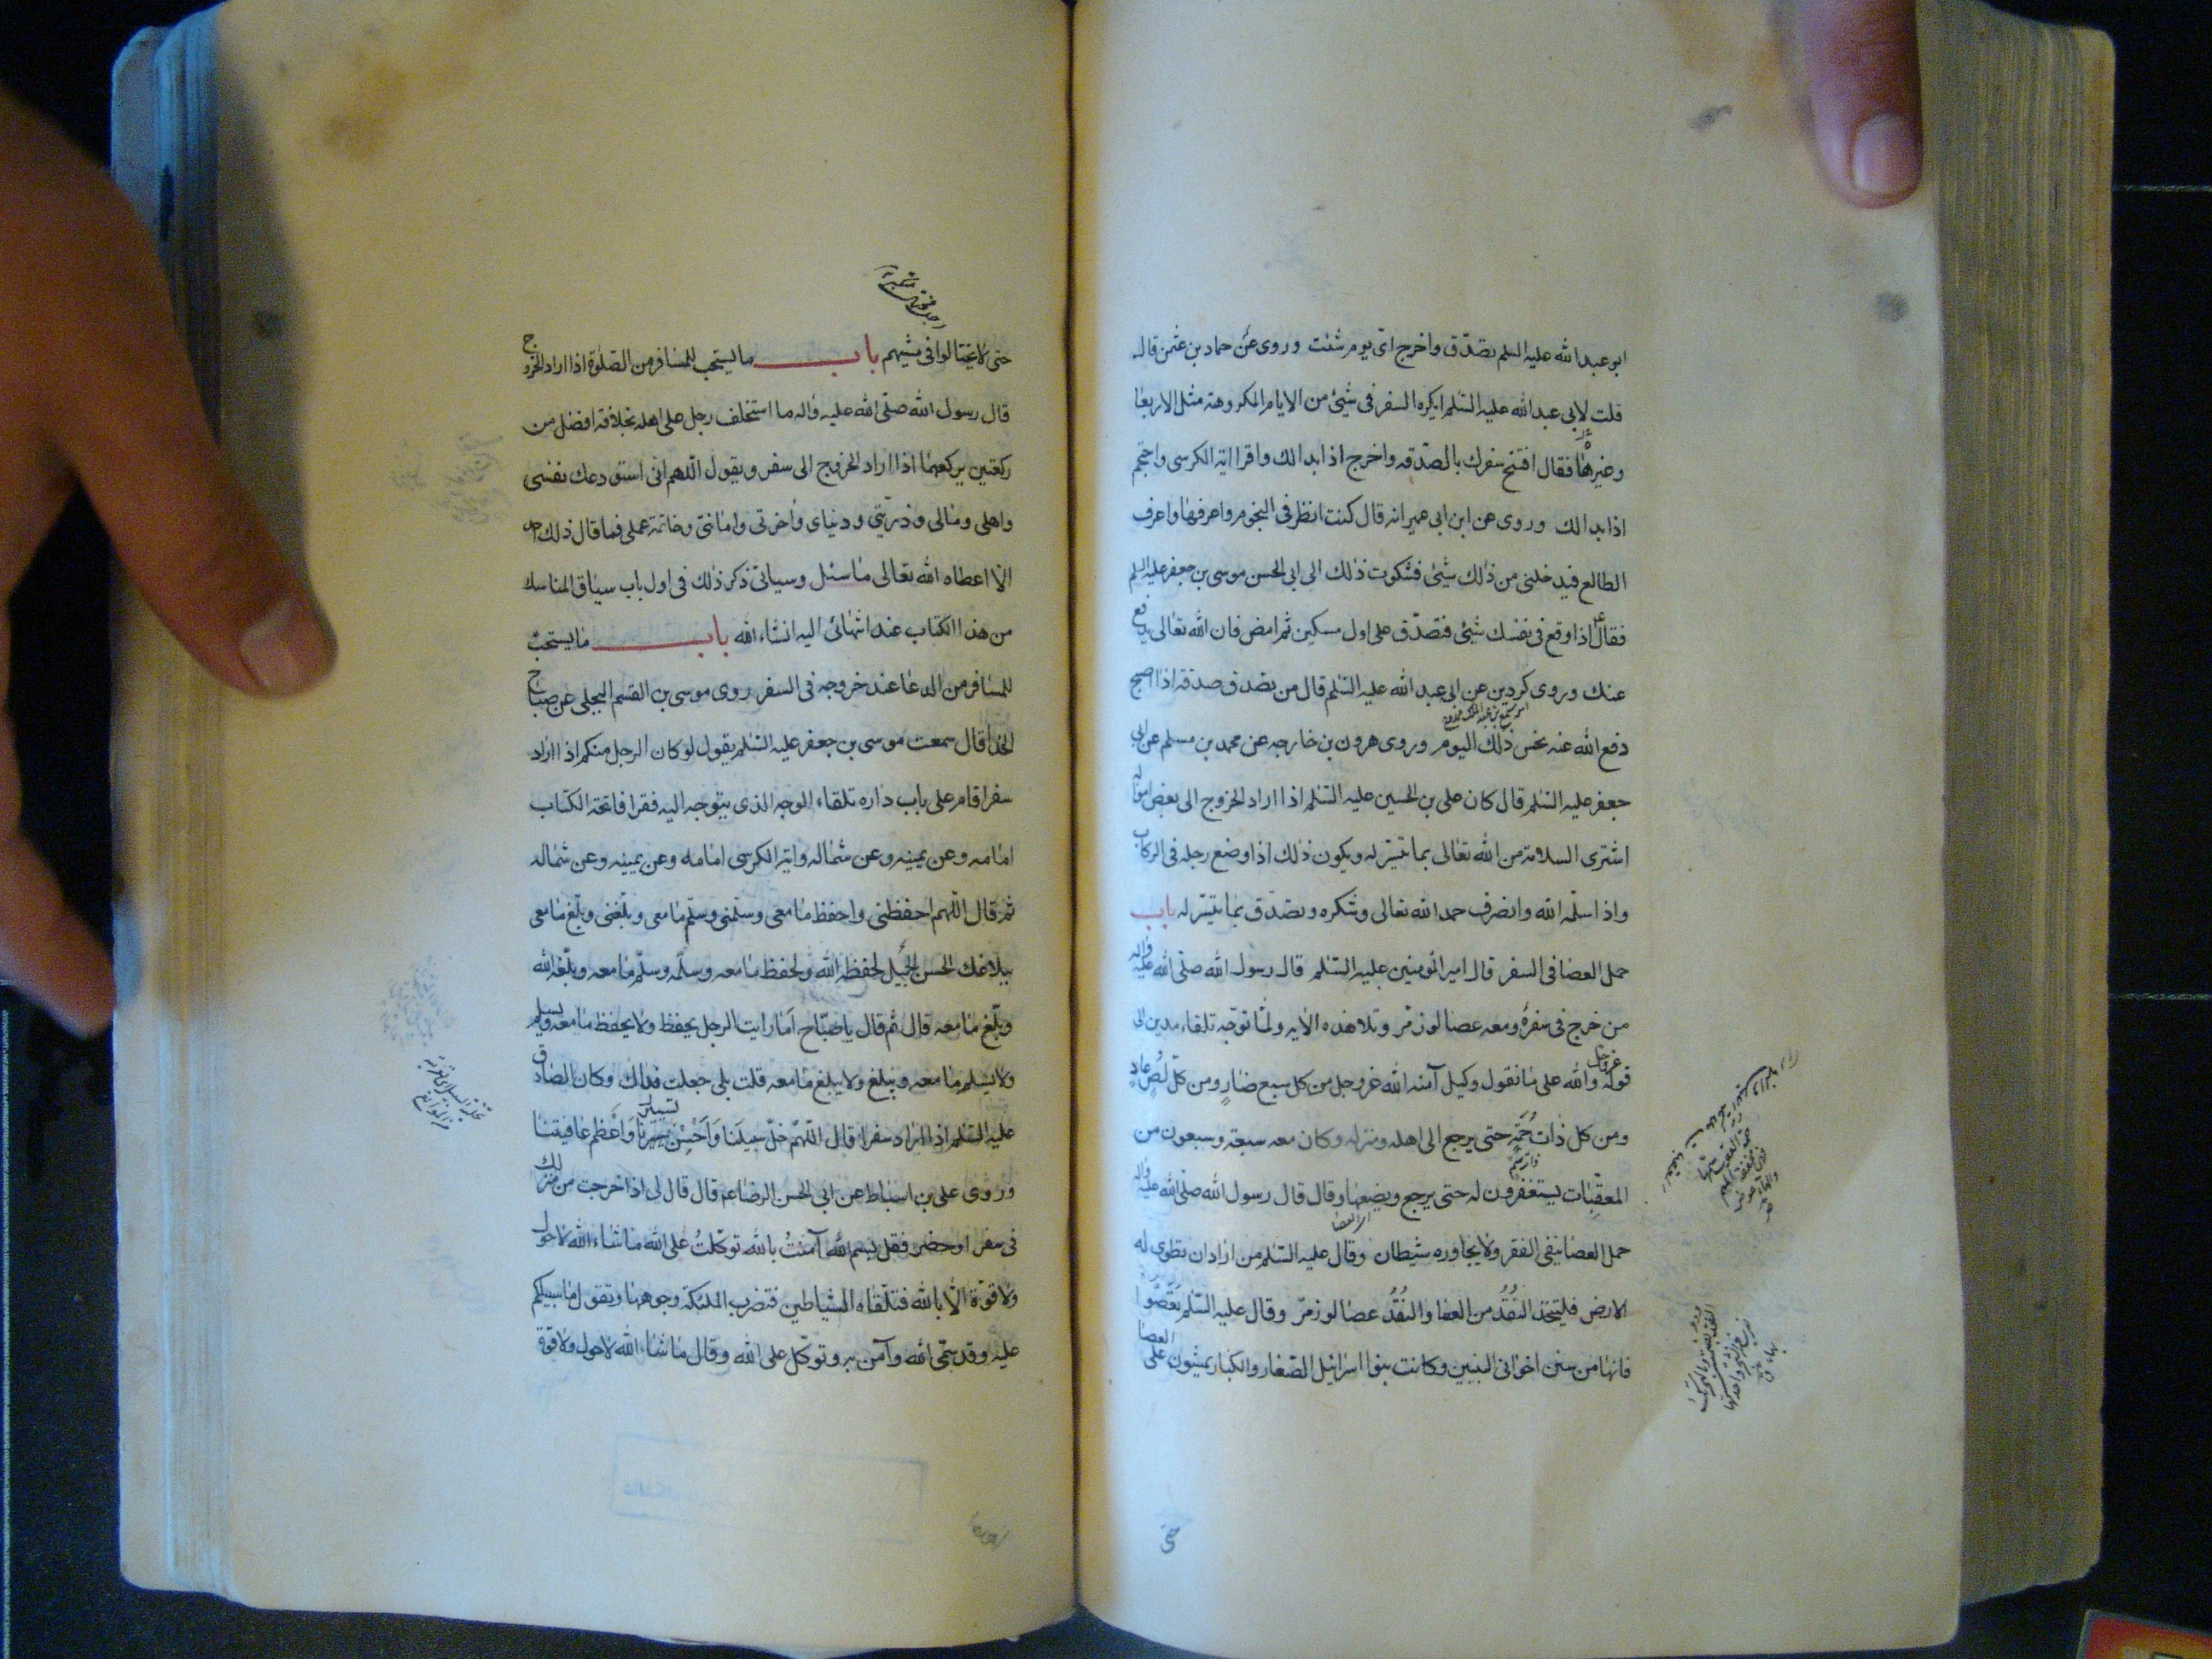 ابو عبد الله عليه السلم تصدّق واخرج اى يوم شئت وروى عن حماد بن عثمن قال
قلت لابى عبد الله عليه السّلم ايكره السفر فى شيئ من الايام المكروهة مثل الاربعا
وغيرها فقال افتتح سفرك بالصّدقه واخرج اذا بدا لك واقرا اية الكرسى واحتجم
اذا بدا لك وروى عن ابن ابى عمير انه قال كنت انظر فى النجوم واعرفها واعرف
الطالع فيدخلنى من ذلك شيئ فشكوت ذلك الى ابى الحسن موسى بن جعفر عليه السلم
فقال اذا وقع فى نفسك شيئ فتصدّق على اول مسكين ثم امض فان الله تعالى يدفع
عنك وروى كردين عن ابى عبد الله عليه السّلم قال من تصدق صدقة اذا اصبح
دفع الله عنه نحس ذلك اليوم وروى هرون بن خارجه عن محمد بن مسلم عن ابى
جعفر عليه السّلم قال كان على بن الحسين عليه السّلم اذا اراد الخروج الى بعض امواله
اشترى السلامة من الله تعالى بما تيسّر له ويكون ذلك اذا وضع رجله فى الركاب
واذا سلّمه الله وانصرف حمد الله تعالى وشكره وتصدق بما تيسّر له باب
حمل العصا فى السفر قال امير المومنين عليه السّلم قال رسول الله صلى الله عليه واله
من خرج فى سفره ومعه عصا لوز مرّ وتلا هذه الايه ولمّا توجّه تلقاء مدين الى
قوله عز وجل والله على ما نقول وكيل آمنه الله عز وجل من كل سبع ضارٍ ومن كل لُصٍ عادٍ
ومن كل ذات حُمَة حتى يرجع الى اهله ومنزله وكان معه سبعة وسبعون من
المعقّبات يستغفرون له حتى يرجع ويضعها وقال قال رسول الله صلى الله عليه واله
حمل العصا ينفى الفقر ولا يجاوره شيطان وقال عليه السّلم من اراد ان تطوى له
الارض فليتخذ النُقُدُ من العصا والنُقُدُ عصا لوز مرّ وقال عليه السّلم تعصّوا
فانها من سنن اخوانى النبيين وكانت بنوا اسرائيل الصّغار والكبار يمشون على العصا
حتى
حتى لا يختالوا فى مشيهم باب ما يستحب للمسافر من الصّلوة اذا اراد الخروج
قال رسول الله صلّى الله عليه واله ما استخلف رجل على اهله بخلافة افضل من
ركعتين يركعهما اذا اراد الخروج الى سفر ويقول اللهم انى استودعك نفسى
واهلى ومالى وذرّيتى ودنياى واخرتى وامانتى وخاتمة عملى فما قال ذلك احد
الّا اعطاه الله تعالى ما سئل وسياتى ذكر ذلك فى اول باب سياق المناسك
من هذا الكتاب عند انتهائى اليه انشاء الله باب ما يستحبّ
للمسافر من الدعا عند خروجه فى السفر روى موسى بن القسم البجلى عن صباح
الحذا قال سمعت موسى بن جعفر عليه السّلم يقول لو كان الرجل منكم اذا اراد
سفرا قام على باب داره تلقاء الوجه الذى يتوجه اليه فقرا فاتحة الكتاب
امامه وعن يمينه وعن شماله واية الكرسى امامه وعن يمينه وعن شماله
ثم قال اللّهم احفظنى واحفظ ما معى وسلّمنى وسلّم ما معى وبلّغنى وبلّغ ما معى
ببلاغك الحسن الجميل لحفظه الله ولحفظ ما معه وسلّمه وسلّم ما معه وبلّغه الله
وبلّغ ما معه قال ثم قال يا صبّاح اما رايت الرجل يحفظ ولا يحفظ ما معه ويسلم
ولا يسلم ما معه ويبلغ ولا يبلغ ما معه قلت بلى جعلت فداك وكان الصادق
عليه السّلم اذا اراد سفرا قال اللّهمّ خلّ سبيلَنا وَاَحْسِنْ تسييرنا وَاَعْظِم عافيتنا
وروى على بن اسباط عن ابى الحسن الرضا ع قال قال لى اذا خرجت من منزلك
فى سفر او حضر فقل بسم الله آمنتُ بالله توكّلتُ على الله ما شاء الله لا حول
ولا قوّة الّا بالله فتلقّاه الشياطين فتضرب الملئكة وجوهها وتقول ما سبيلكم
عليه وقد سمّى الله وآمن به وتوكّل على الله وقال ما شاء الله لا حول ولا قوة